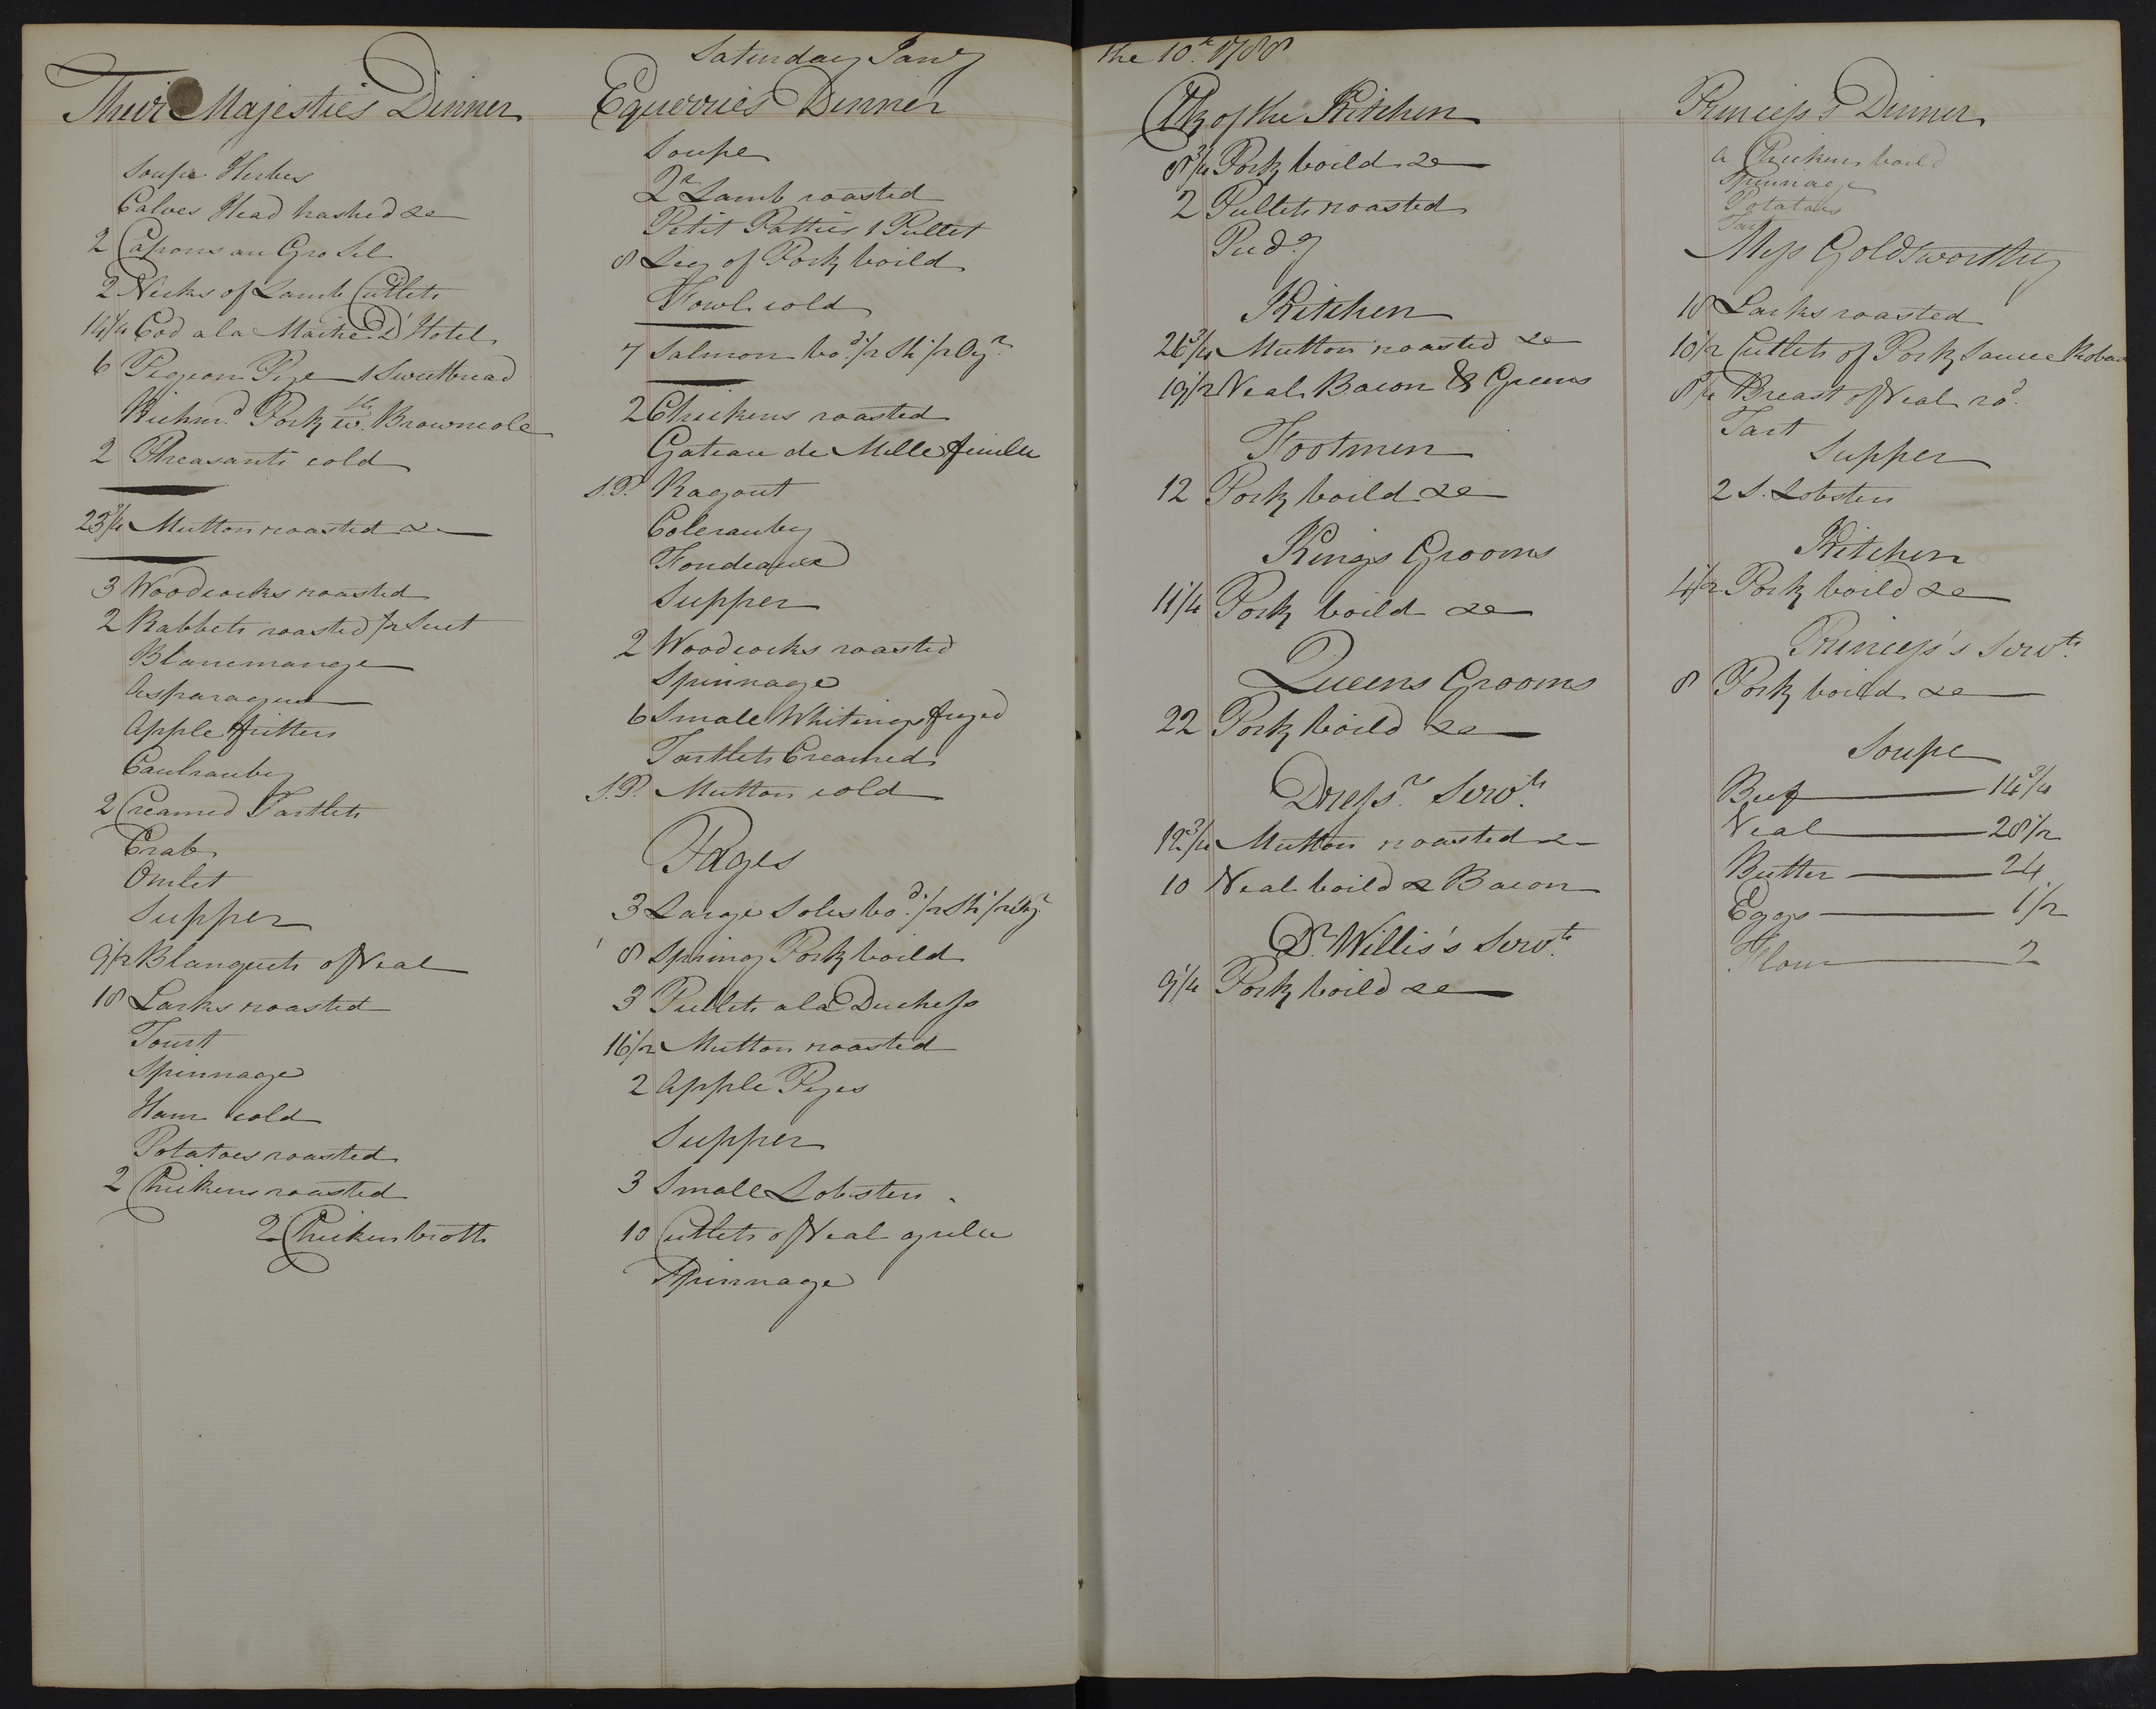 Saturday Jany the 10th 1788
Their Majesties Dinner
Soupe Herbes
Calves Head hashed &c
2 Capons au Gro Sel
2 Necks of Lamb Cutlets
14 1/4 Cod ala Maitre D'Hotel
6 Pigeon Pye 1 Sweetbread
Richmd Pork w. Browncole
2 Pheasants cold
23 3/4 Mutton roasted &c
3 Woodcocks roasted
2 Rabbets roasted 1/2 Suet
Blancmange
Asparagus
Apple fritters
Caulrauby
2 Creamed Tartlets
Crab
Omlet
Supper
9 1/2 Blanquets of Veal
18 Larks roasted
Tourt
Spinnage
Ham cold
Potatoes roasted
2 Chickens roasted
2 Chicken broth
Equerries Dinner
Soupe
2 Qr Lamb roasted
Petit Patties 1 Pullet
8 Leg of Pork boild
Fowl cold
7 Salmon bod 1/2 Sh 1/2 Oyr
2 Chickens roasted
Gateau de Mille feuille
S.P. Ragout
Colerauby
Fondeaux
Supper
2 Woodcocks roasted
Spinnage
6 Small Whitings fryed
Tartlets Creamed
S.P. Mutton cold
Pages
3 Large Soles bod 1/2 Sh 1/2 Oyr
8 Spring Pork boild
3 Pullets ala Duchess
16 1/2 Mutton roasted
2 Apple Pyes
Supper
3 Small Lobsters
10 Cutlets of Veal grile
Spinnage
Clk of the Kitchen
8 3/4 Pork boild &c
2 Pullets roasted
Pudg
Kitchen
26 3/4 Mutton roasted &c
19 1/2 Veal Bacon & Greens
Footmen
12 Pork boild &c
Kings Grooms
11 1/4 Pork boild &c
Queens Grooms
22 Pork boild &c
Dressrs Servts
12 3/4 Mutton roasted &c
10 Veal boild & Bacon
Dr Willis's Servts
9 1/4 Pork boild &c
Princess's Dinner
a Chicken boild
Spinnage
Potatoes
Tart
Miss Goldsworthy
18 Larks roasted
10 1/2 Cutlets of Pork Sauce Robart
8 1/4 Breast of Veal rod
Tart
Supper
2 S. Lobsters
Kitchen
4 1/2 Pork boild &c
Princess's Servts
8 Pork boild &c
Soupe
Beef 14 3/4
Veal 28 1/2
Butter 24
Eggs 1/2
Flour 2